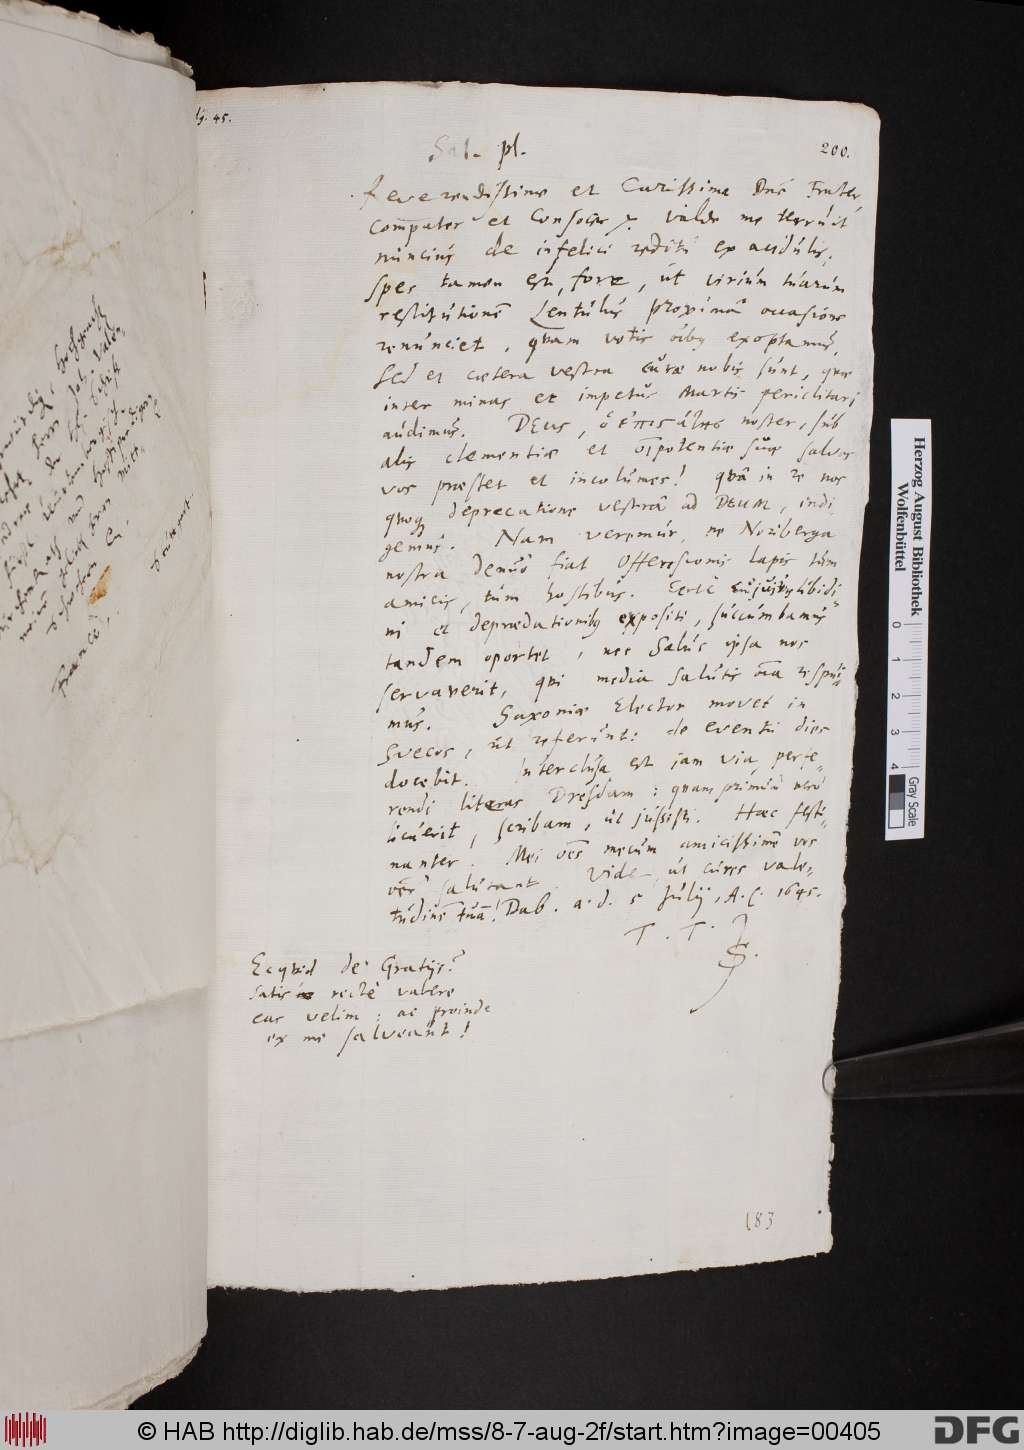 45.
200.
Sal. pl.
Reverendissime et Carissime Dne Frater,
Compater et Consocer. valde me terruit
nuncius de infelici reditu ex acidulis.
Spes tamen est, fore, ut virium tuarum
restitutionē Lentulus proximâ occasione
renunciet, quam votis oïbq exoptamus.
Sed et cætera vestra curæ nobis sunt, quæ
inter minas et impetus Martis periclitari
audimus. DEus, noster, sub
alis clementiæ et oïpotentiæ suæ salvos
vos præstet et incolumes! quâ in re nos
quoq deprecatione vestrâ ad DEUM, indi
gemus. Nam veremur, ne Noriberga
nostra denuò fiat Offensionis lapis tum
amicis, tum hostibus. Certè libidi
ni et deprædationibq expositi, succumbamus
tandem oportet, nec Salus ipsa nos
servaverit, qui media salutis oīa respui
mus. Saxoniæ Elector movet in
Svecos, ut referunt: de eventu dies
docebit. Interclusa est jam via perfe
rendi literas Dresdam: quam primùm verò
licuerit, scribam, ut jussisti. Hæc festi
nanter. Mei oēs mecum amicissimè vos
oēs salutant. Vide, ut cures vale
tudinē tuā! Dab. a. d. 5 Julij, A. C. 1645.
T. T. S.
Ecquid de Gratijs?
Satis rectè valere
eas velim: ac proinde
ex me salveant!
183
Herzog August Bibliothek
Wolfenbüttel
0 1 2 3 4
Gray Scale
© HAB http://diglib.hab.de/mss/8-7-aug-2f/start.htm?image=00405
DFG